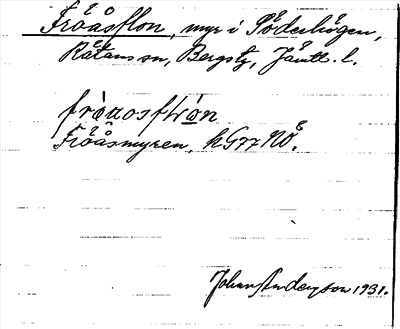 Fröåsflon, myr i Söderhögen,
Rätans sn, Bergs tg, Jämtl. l.
Fröåsmyren, kG77NÖ.
Johan Anderzson 1931.